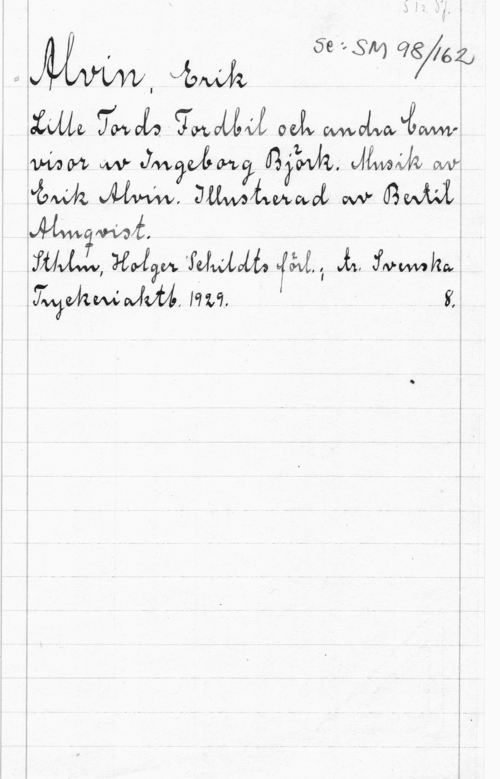 Se: SM 98/162
Alvin, Erik
Lille Tords Fordbil och andra barn-
visor av Ingeborg Björk. Musik av
Erik Alvin. Illustrerad av Bertil
Almqvist.
Sthlm, Holger Schildts förl., tr. Svenska
Tryckeriaktb. 1929. 8.